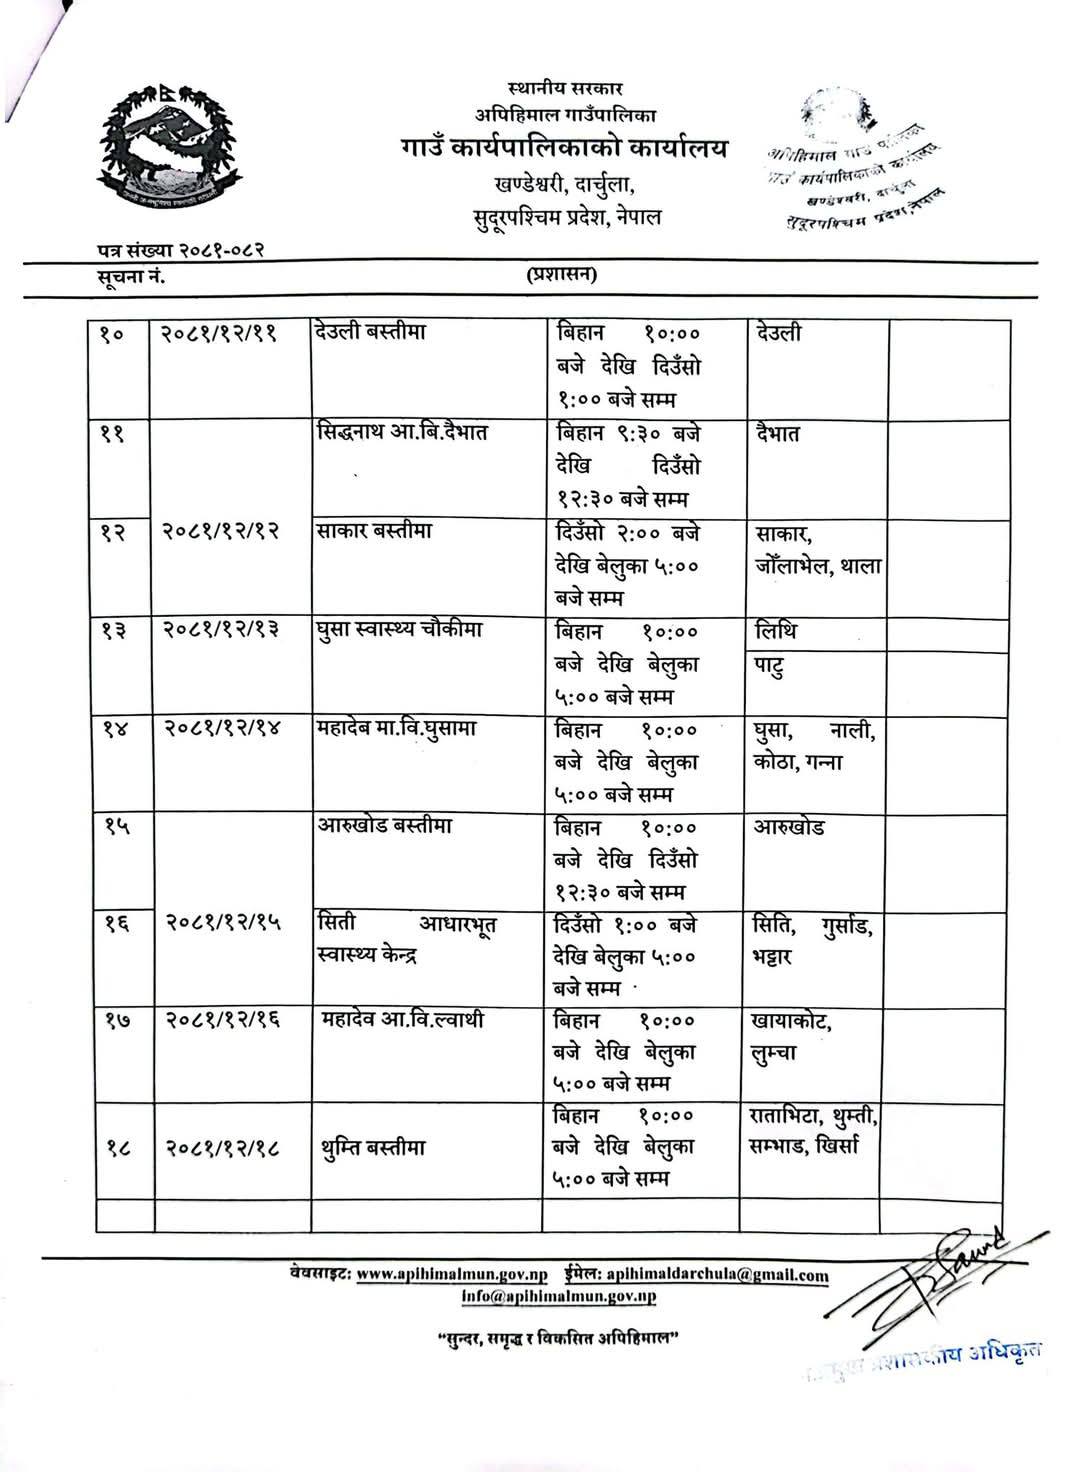 स्थानीय सरकार
अपिहिमाल गाउँपालिका
गाउँ कार्यपालिकाको कार्यालय
खण्डेश्वरी, दार्चुला,
सुदूरपश्चिम प्रदेश, नेपाल
अपिहिमाल गाउँ पालिका
गाउँ कार्यपालिकाको कार्यालय
खण्डेश्वरी, दार्चुला
सुदूरपश्चिम प्रदेश, नेपाल
पत्र संख्या २०८१-०८२
सूचना नं. (प्रशासन)
१० २०८१/१२/११ देउली बस्तीमा बिहान १०:०० देउली
बजे देखि दिउँसो
१:०० बजे सम्म
११ सिद्धनाथ आ.बि.दैभात बिहान ९:३० बजे दैभात
देखि दिउँसो
१२:३० बजे सम्म
१२ २०८१/१२/१२ साकार बस्तीमा दिउँसो २:०० बजे साकार,
देखि बेलुका ५:०० जोँलाभेल, थाला
बजे सम्म
१३ २०८१/१२/१३ घुसा स्वास्थ्य चौकीमा बिहान १०:०० लिथि
बजे देखि बेलुका पाटु
५:०० बजे सम्म
१४ २०८१/१२/१४ महादेब मा.वि.घुसामा बिहान १०:०० घुसा, नाली,
बजे देखि बेलुका कोठा, गन्ना
५:०० बजे सम्म
१५ आरुखोड बस्तीमा बिहान १०:०० आरुखोड
बजे देखि दिउँसो
१२:३० बजे सम्म
१६ २०८१/१२/१५ सिती आधारभूत दिउँसो १:०० बजे सिति, गुर्साड,
स्वास्थ्य केन्द्र देखि बेलुका ५:०० भट्टार
बजे सम्म
१७ २०८१/१२/१६ महादेव आ.वि.ल्वाथी बिहान १०:०० खायाकोट,
बजे देखि बेलुका लुम्चा
५:०० बजे सम्म
बिहान १०:०० राताभिटा, थुम्ती,
१८ २०८१/१२/१८ थुम्ति बस्तीमा बजे देखि बेलुका सम्भाड, खिर्सा
५:०० बजे सम्म
वेवसाइट: www.apihimalmun.gov.np ईमेल: apihimaldarchula@gmail.com
info@apihimalmun.gov.np
“सुन्दर, समृद्ध र विकसित अपिहिमाल”
प्रमुख प्रशासकीय अधिकृत